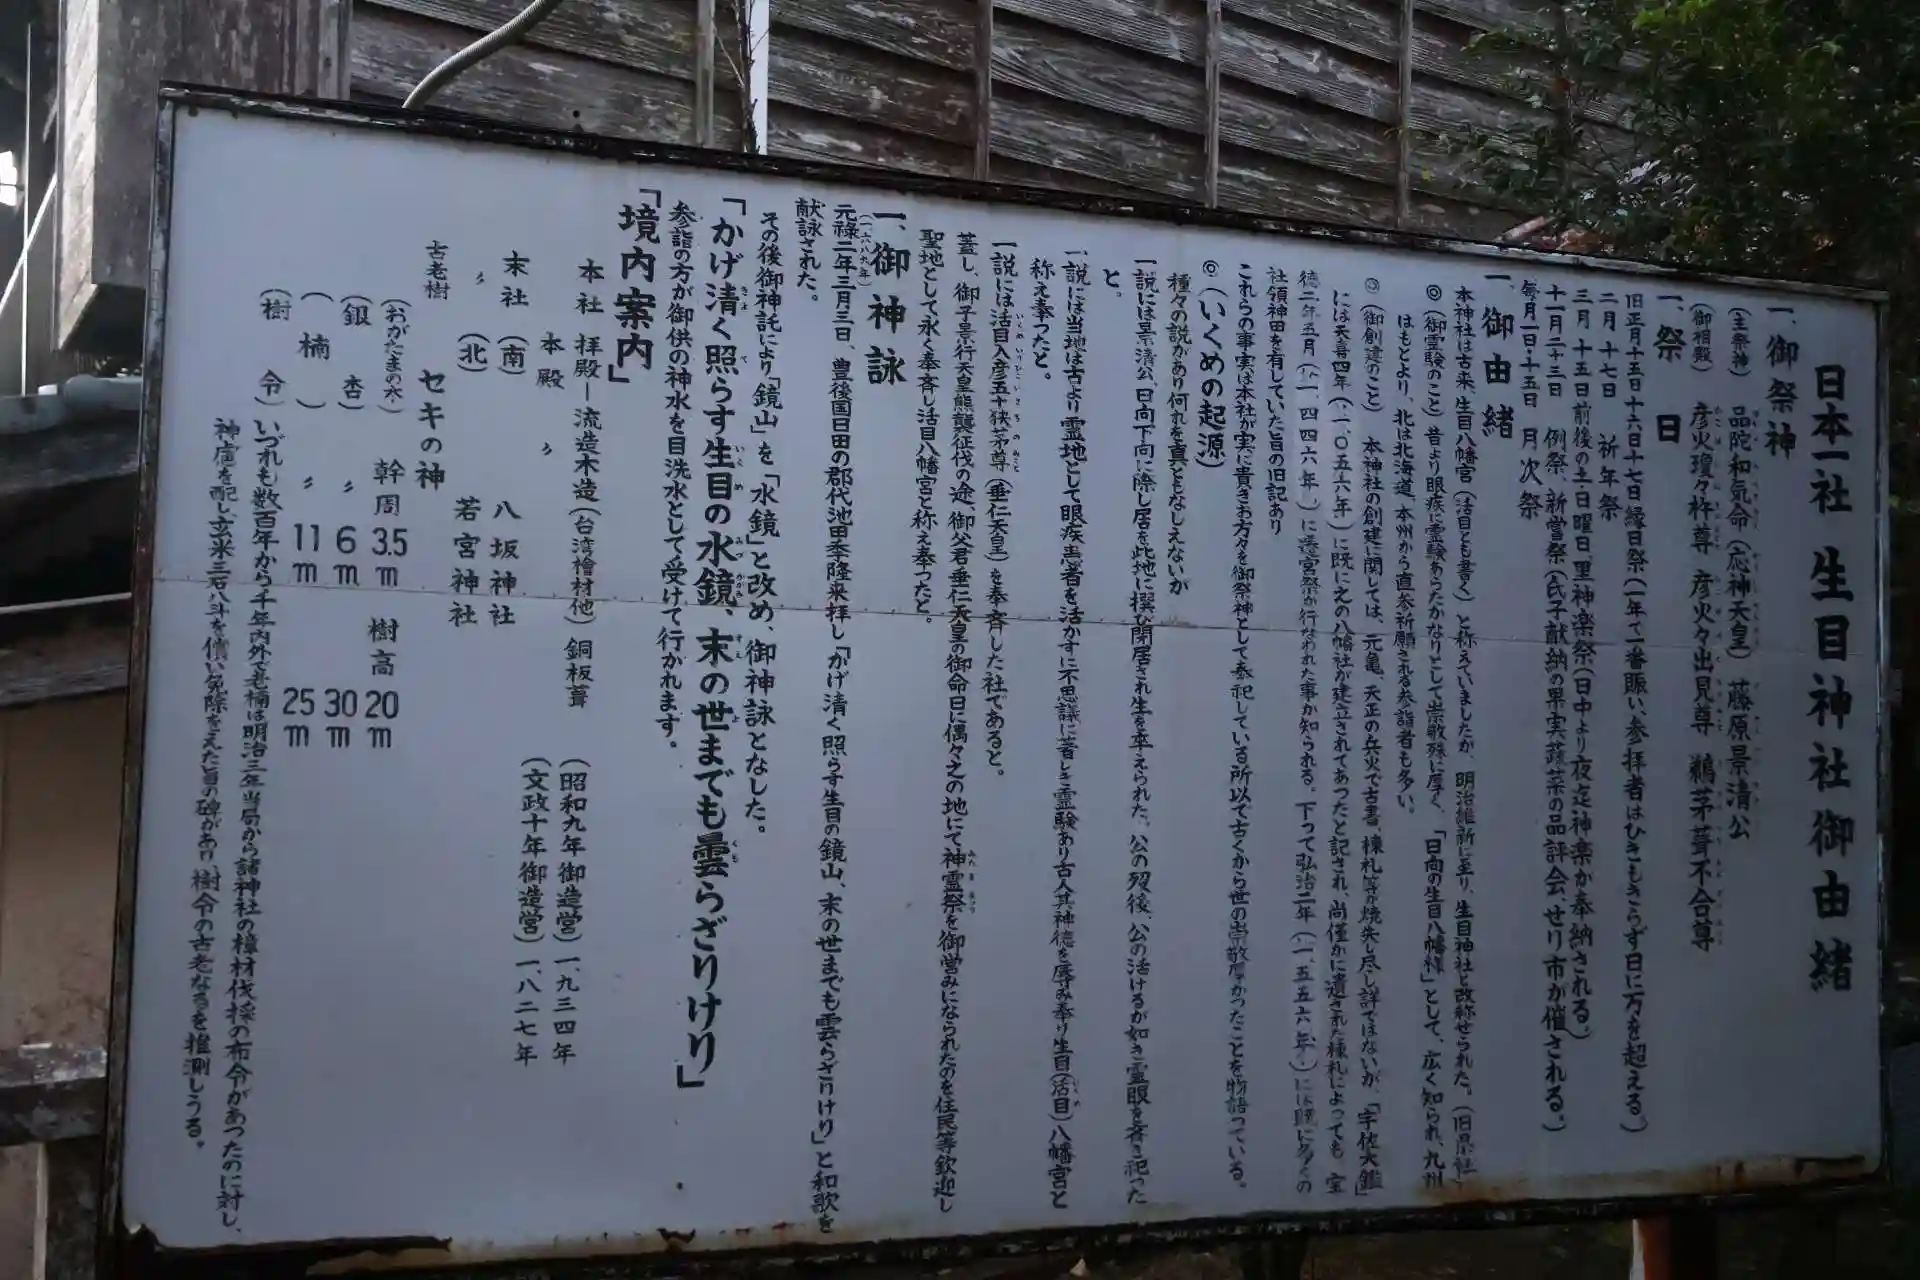 日本一社 生目神社御由緒
一、御祭神
(主祭神) 品陀和気命(応神天皇) 藤原景清公
(御相殿) 彦火瓊々杵尊 彦火々出見尊 鵜茅葺不合尊
一、祭日
旧正月十五日十六日十七日縁日祭(一年で一番賑い、参拝者はひきもきらず日に万を超える)
二月十七日 祈年祭
三月十五日前後の土・日曜日里神楽祭(日中より夜迄神楽が奉納される)
十一月二十三日 例祭、新嘗祭(氏子献納の果実蔬菜の品評会、せり市が催される)
毎月一日・十五日 月次祭
一、御由緒
本神社は古来、生目八幡宮(活目とも書く)と称えていましたが、明治維新に至り、生目神社と改称せられた。(旧県社)
◎(御霊験のこと) 昔より眼疾に霊験あらたかなりとして崇敬殊に厚く、「日向の生目八幡様」として、広く知られ、九州
はもとより、北は北海道、本州から直参祈願される参詣者も多い。
◎(御創建のこと) 本神社の創建に関しては、元亀、天正の兵火で古書、棟札等が焼失し尽し詳ではないが、「宇佐大鑑」
には天喜四年(一、〇五六年)に既に之の八幡社が建立されてあったと記され、尚僅かに遺された棟札によっても、宝
徳二年五月(一、四四六年)に遷宮祭が行なわれた事が知られる。下って弘治二年(一、五五六年)には既に多くの
社領神田を有していた旨の旧記あり
これらの事実は本社が実に貴きお方々を御祭神として奉祀している所以で古くから世の崇敬厚かったことを物語っている。
◎(いくめの起源)
種々の説があり何れを真ともなしえないが
一説には景清公、日向下向に際し居を此地に撰び閉居され生を卒えられた。公の歿後、公の活けるが如き霊眼を斎き祀った
と。
一説には当地は古より霊地として眼疾患者を活かすに不思議に著しき霊験あり古人其神徳を辱み奉り生目(活目)八幡宮と
称え奉つたと。
一説には活目入彦五十狭茅尊(垂仁天皇)を奉斉した社であると。
蓋し、御子景行天皇熊襲征伐の途、御父君垂仁天皇の御命日に偶々之の地にて神霊祭を御営みになられたのを住民等欽迎し
聖地として永く奉斉し活目八幡宮と称え奉つたと。
一、御神詠
(一六八九年)
元禄二年三月三日、豊後国日田の郡代池田季隆来拝し「かげ清く照らす生目の鏡山、末の世までも雲らざりけり」と和歌を
献詠された。
その後御神託により「鏡山」を「水鏡」と改め、御神詠となした。
「かげ清く照らす生目の水鏡、末の世までも雲らざりけり」
参詣の方が御供の神水を目洗水として受けて行かれます。
「境内案内」
本社 拝殿―流造木造(台湾檜材他)銅板葺 (昭和九年御造営)一、九三四年
本殿 〃 (文政十年御造営)一、八二七年
末社(南) 八坂神社
〃(北) 若宮神社
セキの神
古老樹
(おがたまの木) 幹周 3.5m 樹高 20m
(銀杏) 〃 6m 30m
(楠) 〃 11m 25m
(樹令)いづれも数百年から千年内外で老楠は明治三年当局から諸神社の樟材伐採の布令があつたのに対し、
神慮を配し玄米三石八斗を償い免除をえた旨の碑があり、樹令の古老なるを推測しうる。